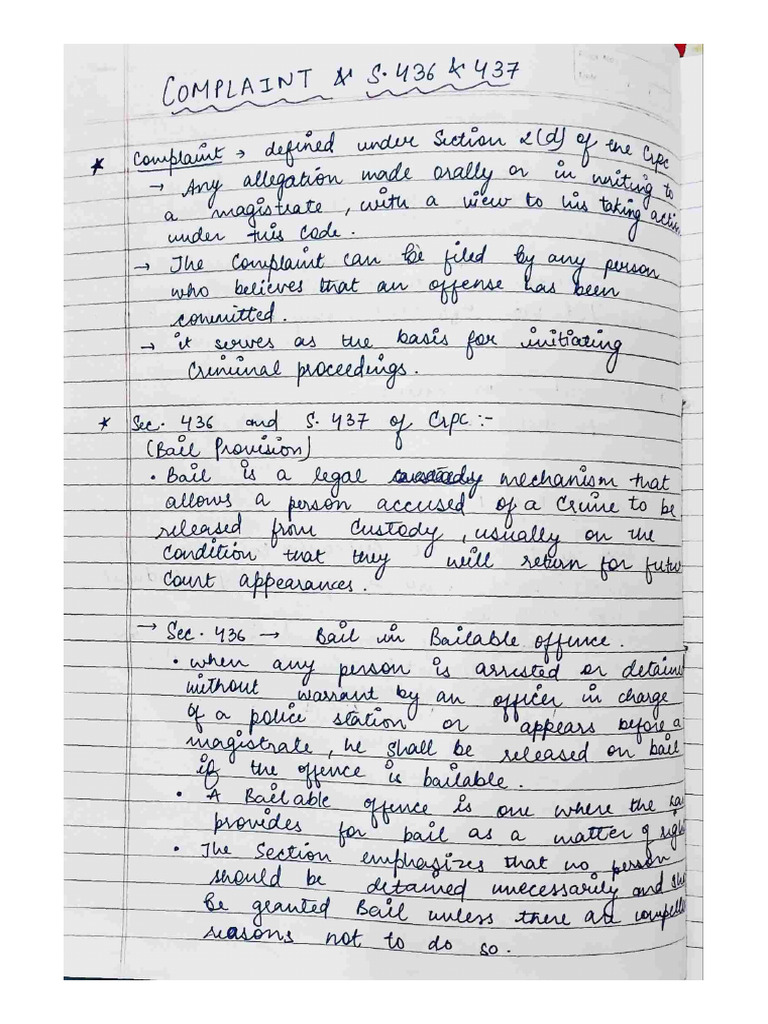 COMPLAINT & S. 436 & 437
* Complaint → defined under Section 2(d) of the Crpc
→ Any allegation made orally or in writing to
a magistrate, with a view to his taking actio
under this code.
→ The Complaint can be filed by any person
who believes that an offense has been
committed.
→ it serves as the basis for initiating
Criminal proceedings.
* Sec. 436 and S. 437 of Crpc :-
(Bail Provision)
• Bail is a legal mechanism that
allows a person accused of a Crime to be
released from Custody, usually on the
condition that they will return for futu
Court appearances.
→ Sec. 436 → Bail in Bailable offence.
• when any person is arrested or detaine
without warrant by an officer in charge
of a police station or appears before a
magistrate, he shall be released on bail
if the offence is bailable.
• A Bailable offence is one where the la
provides for bail as a matter of righ
• The Section emphasizes that no person
should be detained unnecessarily and sh
be granted Bail unless there are compelle
reasons not to do so.